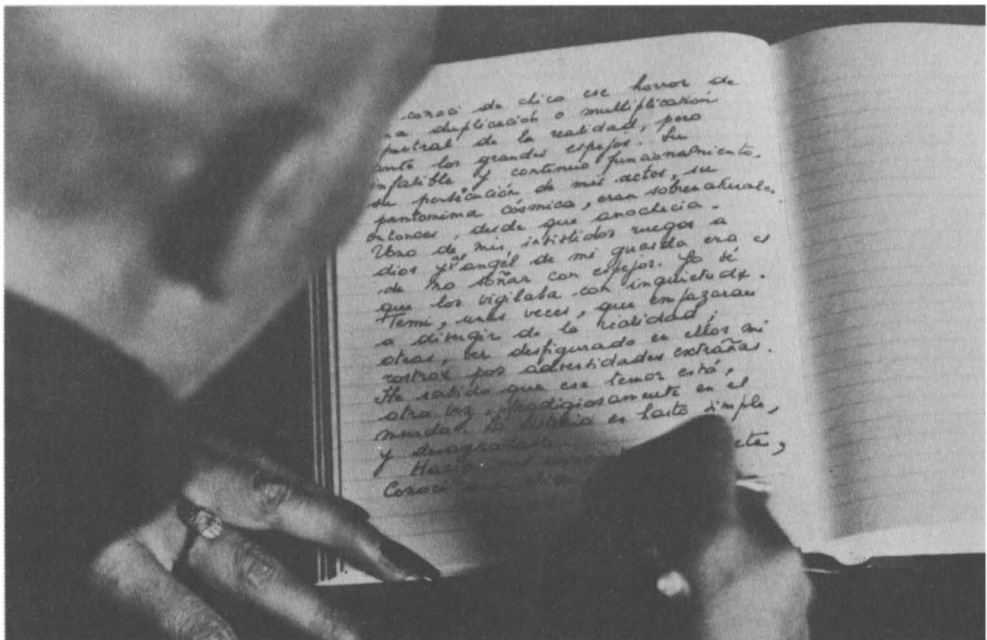 conocí de chico ese horror de
na duplicación o multiplicación
pectral de la realidad, pero
ante los grandes espejos. Su
infalible y continuo funcionamiento,
su persecución de mis actos, su
pantomima cósmica, eran sobrenaturales
entonces, desde que anochecía.
Uno de mis insistidos ruegos a
dios y al angel de mi guarda era el
de no soñar con espejos. Yo sé
que los vigilaba con inquietud.
Temí, unas veces, que empezaran
a divergir de la realidad;
otras, ver desfigurado en ellos mi
rostro por adversidades extrañas.
He sabido que ese temor está,
otra vez, prodigiosamente en el
mundo. La historia es harto simple,
y desagradable.
Hacia mil
Conocí